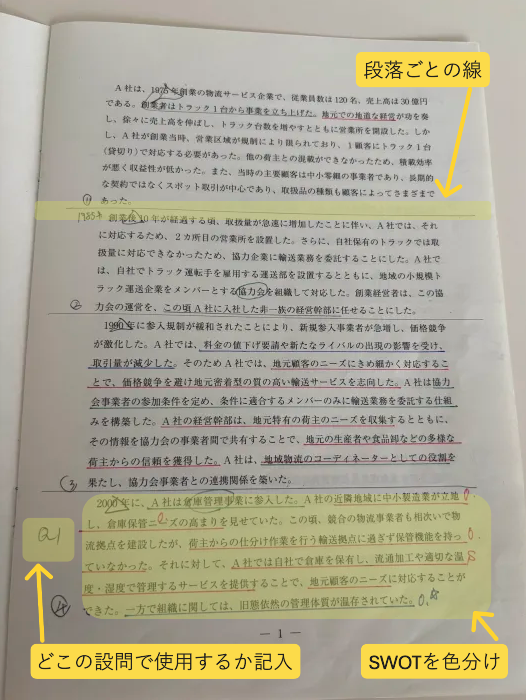 段落ごとの線
A社は、1975年創業の物流サービス企業で、従業員数は120名、売上高は30億円
である。創業者はトラック1台から事業を立ち上げた。地元での地道な経営が功を奏
し、徐々に売上高を伸ばし、トラック台数を増やすとともに営業所を開設した。しか
し、A社が創業当時、営業区域が規制により限られており、1顧客にトラック1台
(貸切り)で対応する必要があった。他の荷主との混載ができなかったため、積載効率
が悪く収益性が低かった。また、当時の主要顧客は中小零細の事業者であり、長期的
な契約ではなくスポット取引が中心であり、取扱品の種類も顧客によってさまざまで
① あった。
1985年 創業後10年が経過する頃、取扱量が急速に増加したことに伴い、A社では、それ
に対応するため、2カ所目の営業所を設置した。さらに、自社保有のトラックでは取
扱量に対応できなかったため、協力企業に輸送業務を委託することにした。A社で
は、自社でトラック運転手を雇用する運送部を設置するとともに、地域の小規模ト
ラック運送企業をメンバーとする協力会を組織して対応した。創業経営者は、この協
② 力会の運営を、この頃A社に入社した非一族の経営幹部に任せることにした。
1990年に参入規制が緩和されたことにより、新規参入事業者が急増し、価格競争
が激化した。A社では、料金の値下げ要請や新たなライバルの出現の影響を受け、
取引量が減少した。そのためA社では、地元顧客のニーズにきめ細かく対応するこ
とで、価格競争を避け地元密着型の質の高い輸送サービスを志向した。A社は協力
会事業者の参加条件を定め、条件に適合するメンバーのみに輸送業務を委託する仕組
みを構築した。A社の経営幹部は、地元特有の荷主のニーズを収集するとともに、
その情報を協力会の事業者間で共有することで、地元の生産者や食品卸などの多様な
荷主からの信頼を獲得した。A社は、地域物流のコーディネーターとしての役割を
③ 果たし、協力会事業者との連携関係を築いた。
2000年に、A社は倉庫管理事業に参入した。A社の近隣地域に中小製造業が立地 O
し、倉庫保管ニーズの高まりを見せていた。この頃、競合の物流事業者も相次いで物
Q1 流拠点を建設したが、荷主からの仕分け作業を行う輸送拠点に過ぎず保管機能を持っ O
ていなかった。それに対して、A社では自社で倉庫を保有し、流通加工や適切な温 S
度・湿度で管理するサービスを提供することで、地元顧客のニーズに対応することが
④ できた。一方で組織に関しては、旧態依然の管理体質が温存されていた。
― 1 ―
どこの設問で使用するか記入
SWOTを色分け